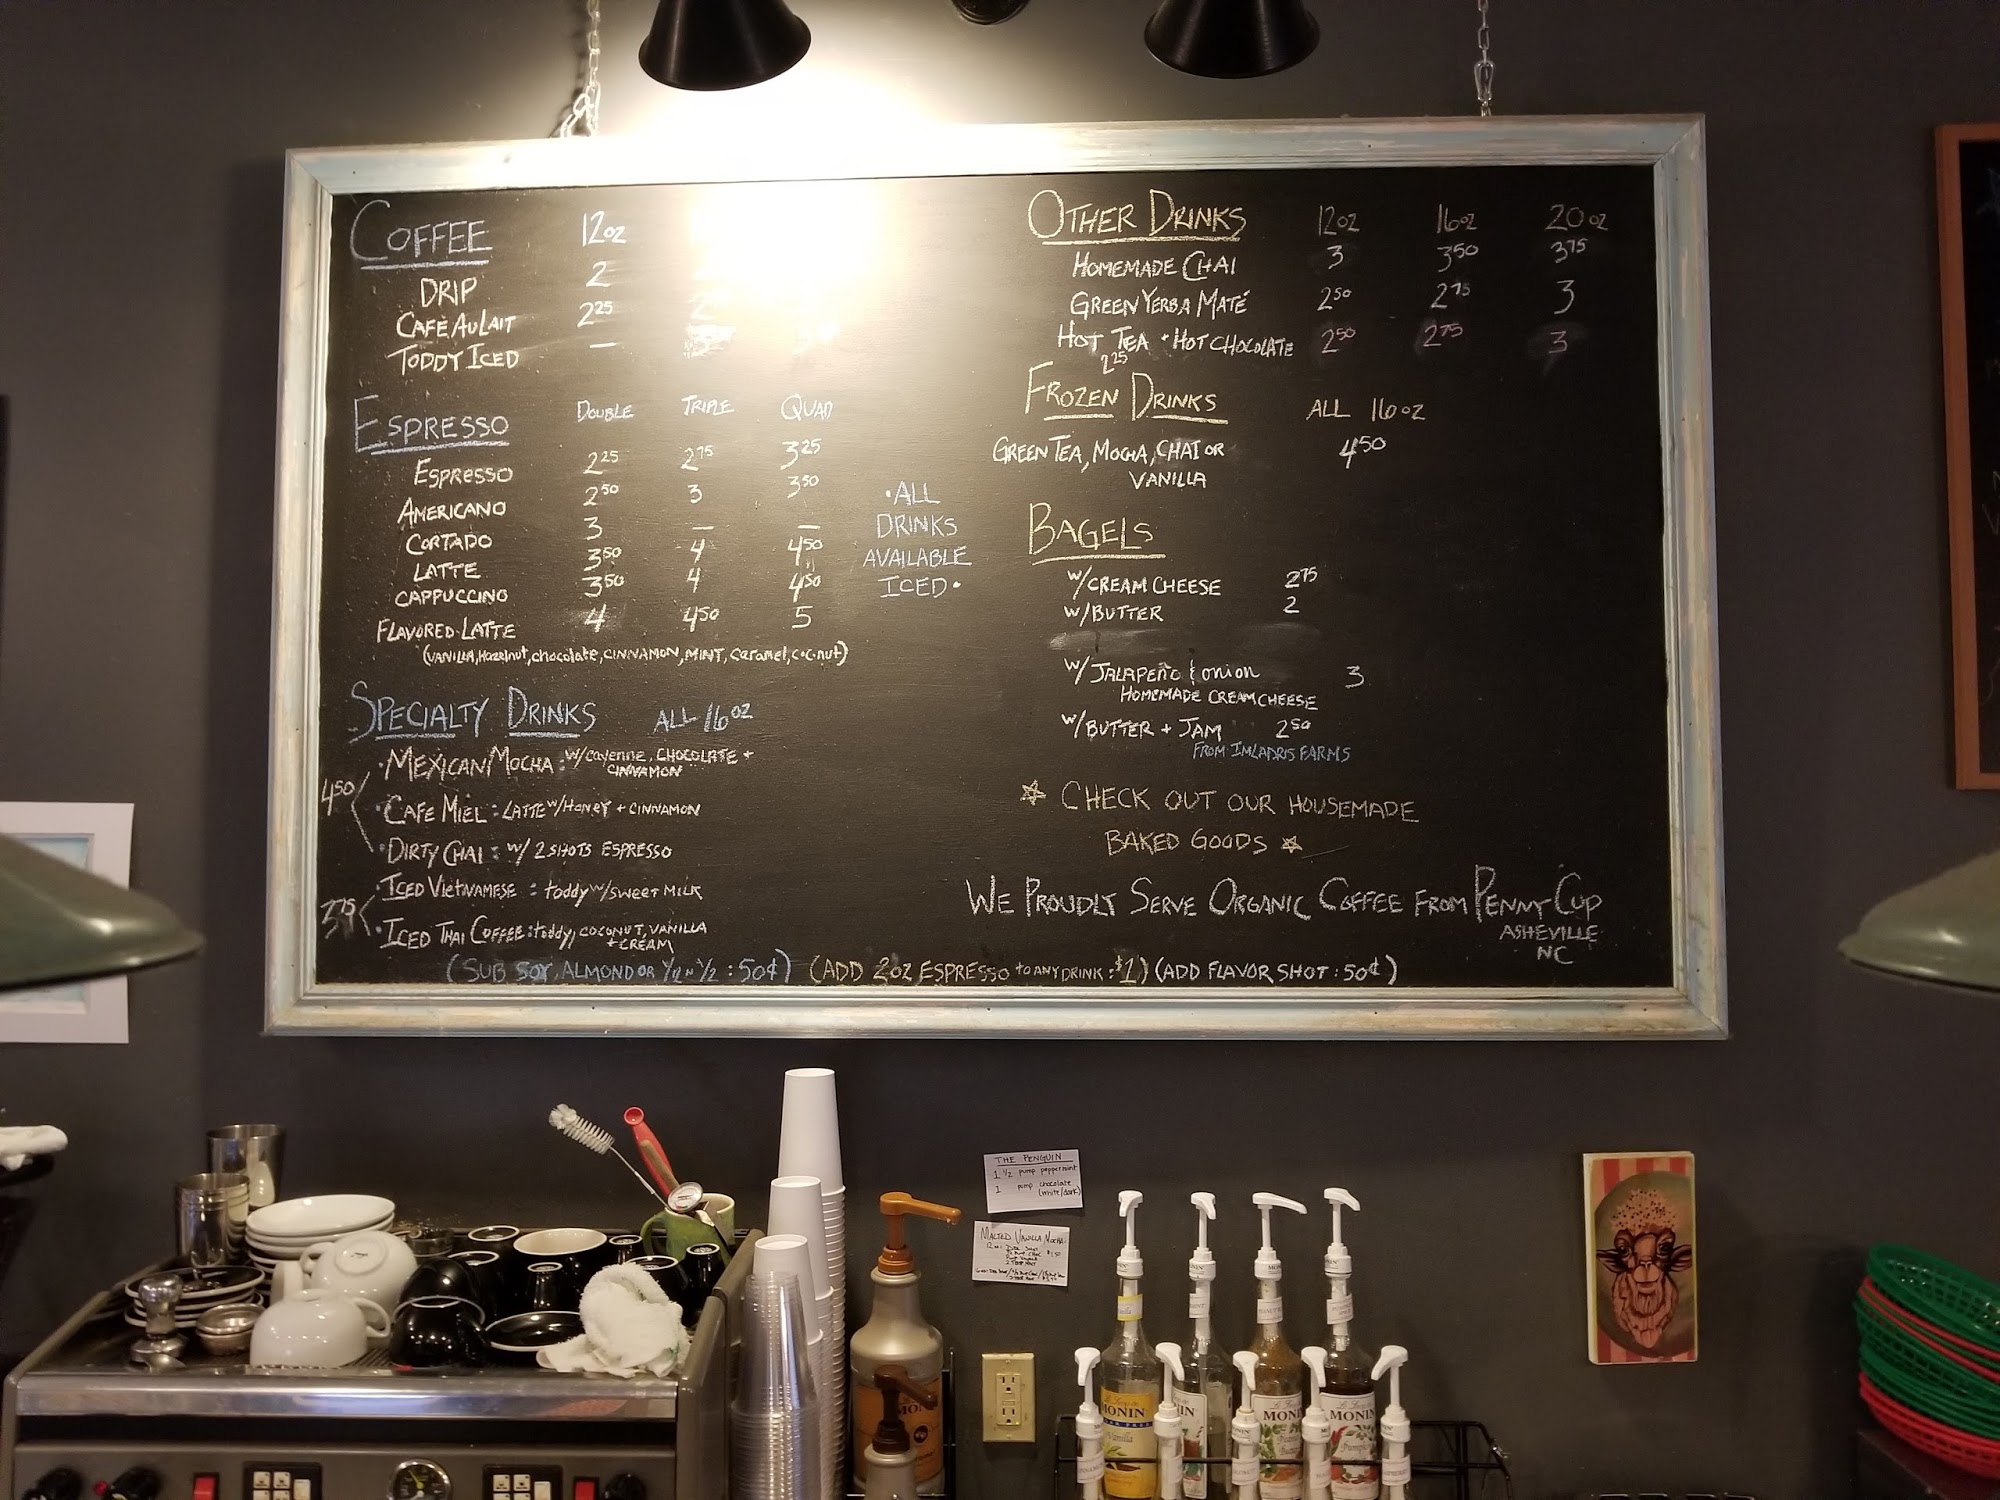 COFFEE 12oz
DRIP 2
CAFÈ AU LAIT 2 25
TODDY ICED —
ESPRESSO DOUBLE TRIPLE QUAD
ESPRESSO 2 25 2 75 3 25
AMERICANO 2 50 3 3 50
CORTADO 3 — —
LATTE 3 50 4 4 50
CAPPUCCINO 3 50 4 4 50
FLAVORED LATTE 4 4 50 5
(VANILLA, Hazelnut, chocolate, CINNAMON, MINT, caramel, coconut)
• ALL
DRINKS
AVAILABLE
ICED •
SPECIALTY DRINKS ALL 16oz
4 50
• MEXICAN MOCHA : w/ cayenne, CHOCOLATE +
CINNAMON
• CAFE MIEL : LATTE w/ HONEY + CINNAMON
• DIRTY CHAI : w/ 2 SHOTS ESPRESSO
3 75
• ICED VIETNAMESE : toddy w/ SWEET MILK
• ICED THAI COFFEE : toddy, COCONUT, VANILLA
+ CREAM
OTHER DRINKS 12oz 16oz 20oz
HOMEMADE CHAI 3 3 50 3 75
GREEN YERBA MATÉ 2 50 2 75 3
HOT TEA • HOT CHOCOLATE 2 50 2 75 3
2 25
FROZEN DRINKS ALL 16oz
GREEN TEA, MOCHA, CHAI OR 4 50
VANILLA
BAGELS
w/ CREAM CHEESE 2 75
w/ BUTTER 2
w/ JALAPEÑO & onion 3
HOMEMADE CREAM CHEESE
w/ BUTTER + JAM 2 50
FROM IMLADRIS FARMS
CHECK OUT OUR HOUSEMADE
BAKED GOODS
WE PROUDLY SERVE ORGANIC COFFEE FROM PENNY CUP
ASHEVILLE
NC
(SUB SOY, ALMOND OR 1/2 N 1/2 : 50¢) (ADD 2oz ESPRESSO TO ANY DRINK : $1) (ADD FLAVOR SHOT : 50¢)
THE PENGUIN
1 1/2 pump peppermint
1 pump chocolate
(white/dark)
MALTED VANILLA MOCHA
MONIN
MONIN
Vanilla
MONIN
MONIN